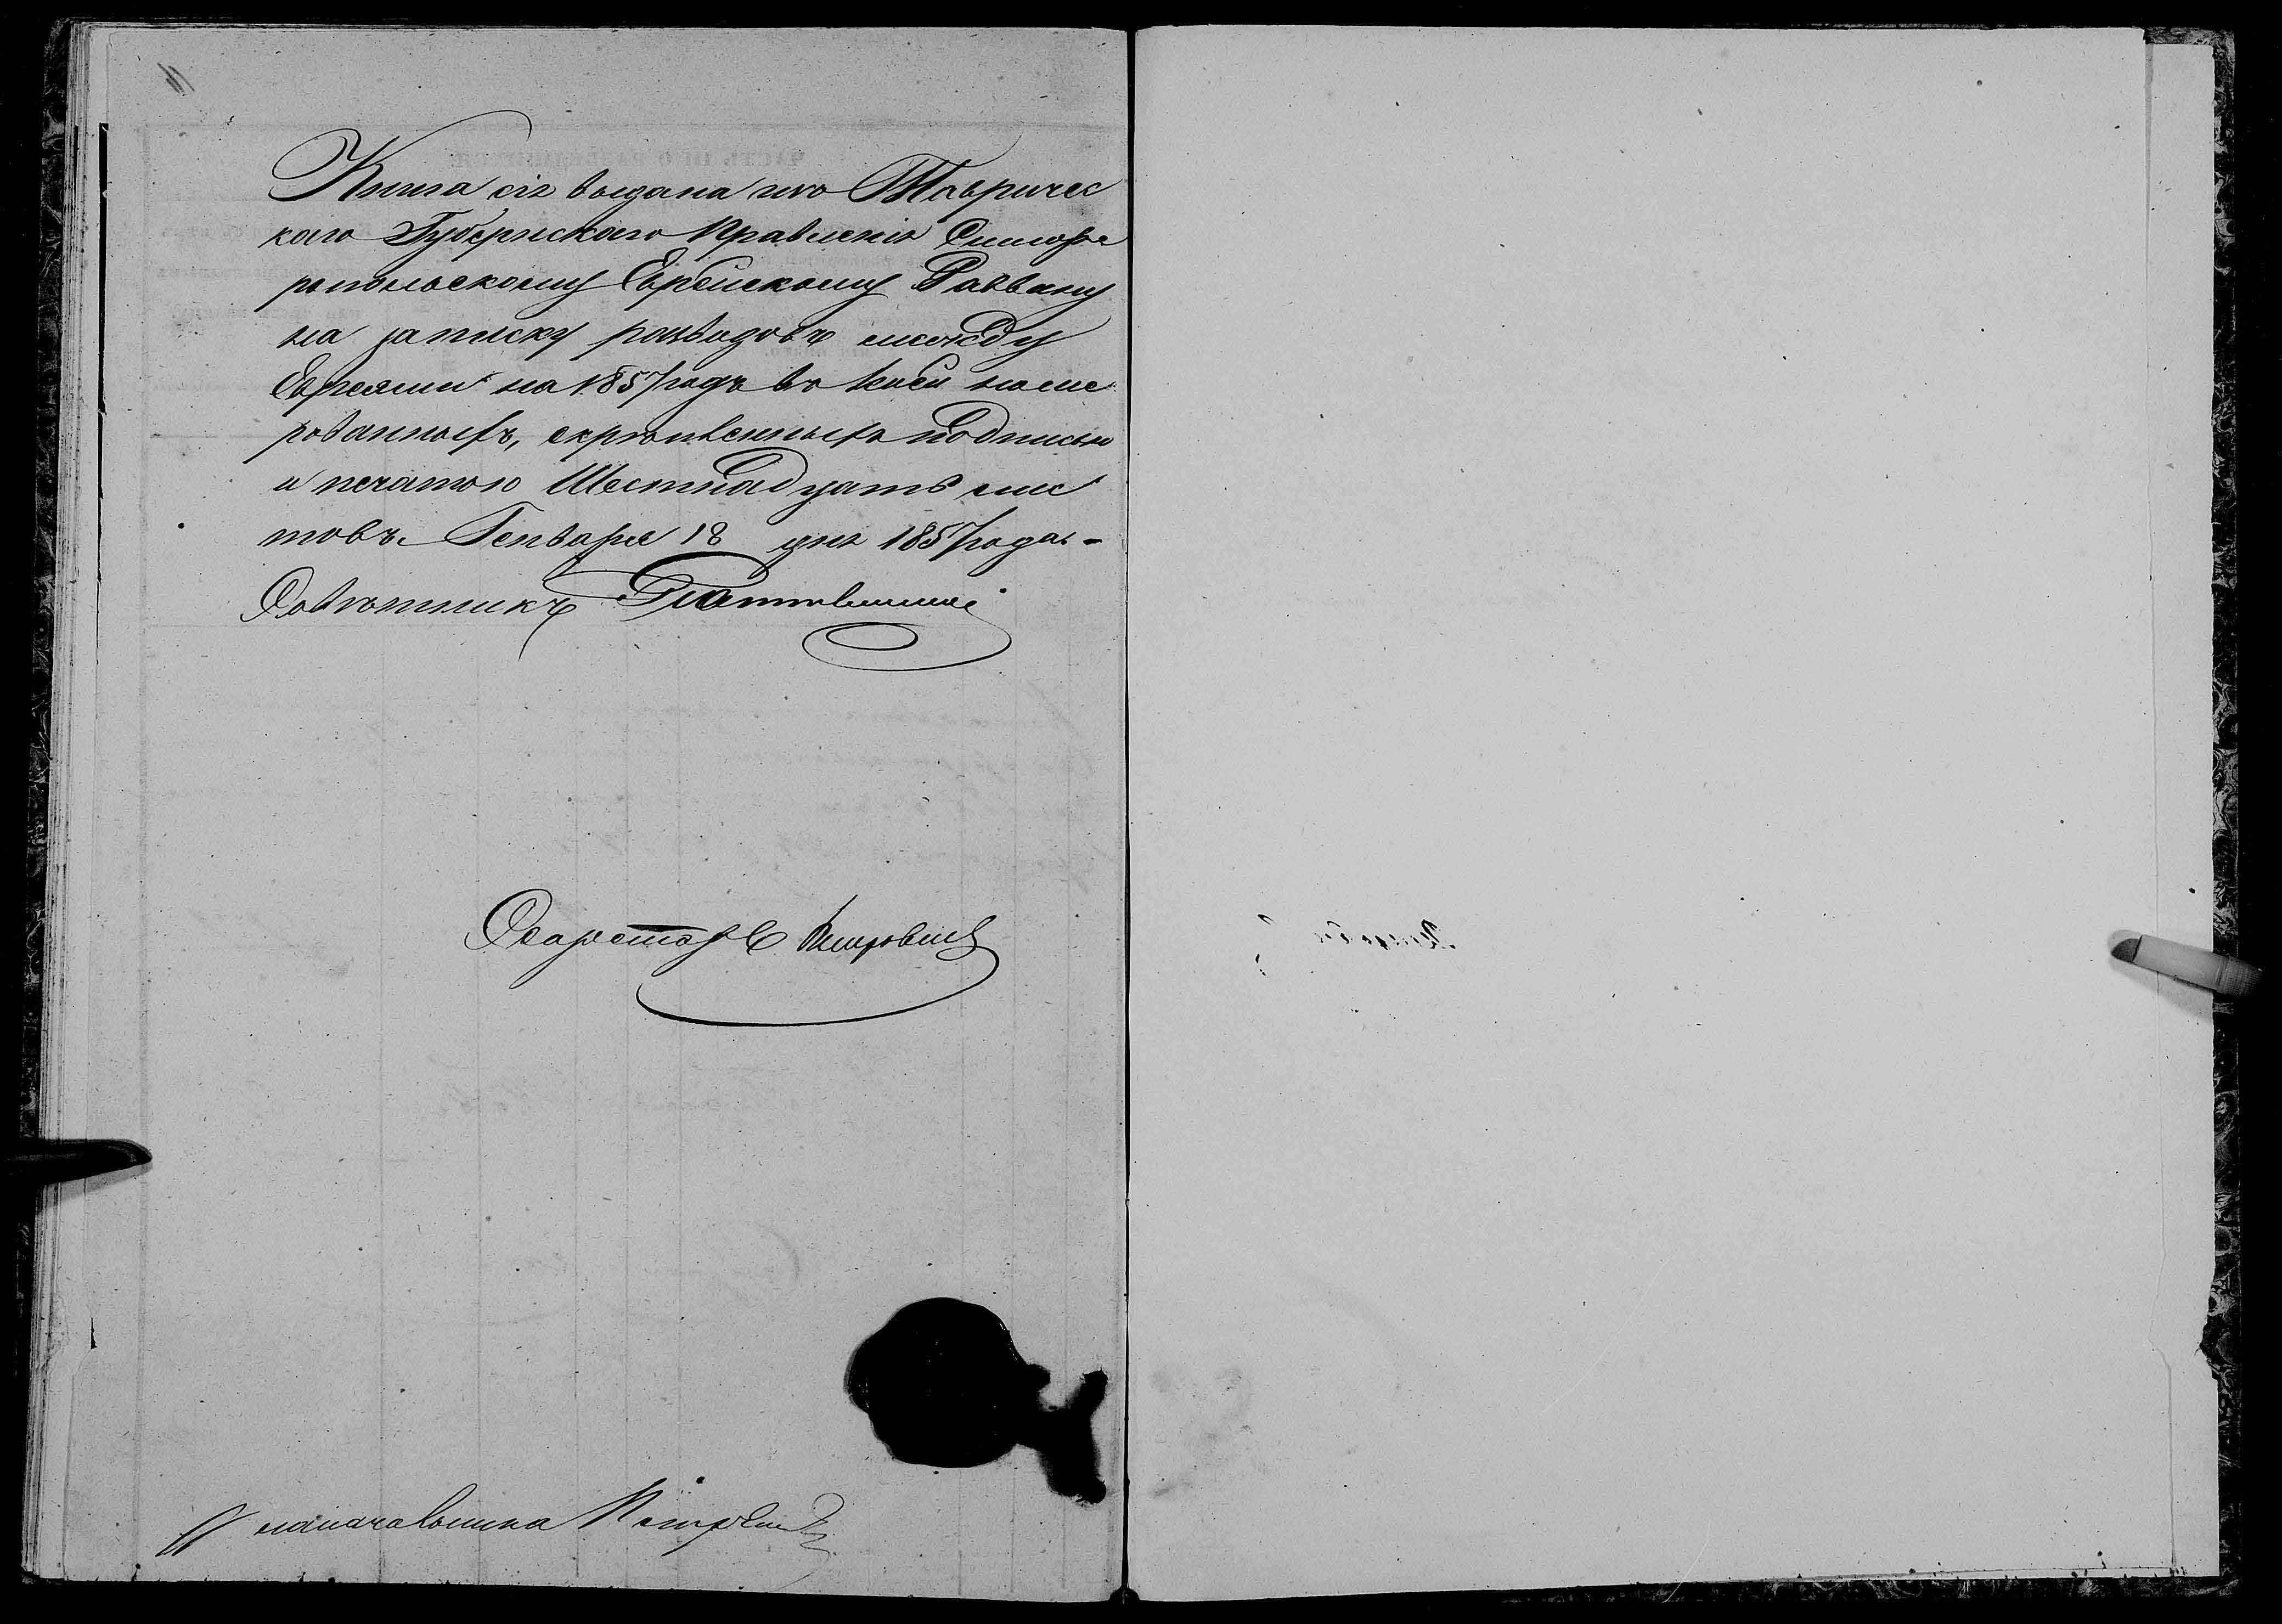 Книга сія выдана изъ Tавричес
каго Губернскаго Правленія Симфе
ропольскому Еврейскому Раввину
на записку разводовъ между
Евреями на 1857 годъ въ коей номе
рованныхъ, скрѣпленныхъ подписью
и печатью Шестнадцать лис
товъ. Генваря 18 дня 1857 года. -
Совѣтникъ
Секретарь Петровскій